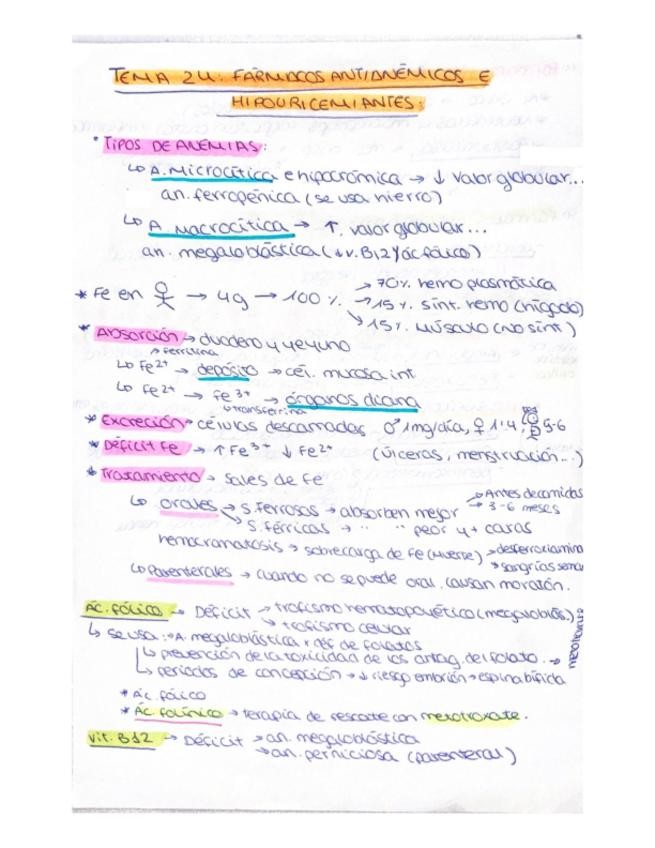 TEMA 24: FÁRMACOS ANTIANÉMICOS E
HIPOURICEMIANTES:
* TIPOS DE ANEMIAS:
↳ A. Microcítica e hipocrómica → ↓ valor globular...
an. ferropénica (se usa hierro)
↳ A. Macrocítica → ↑ valor globular...
an. megaloblástica (↓ v. B12 y ác fólico)
→ 70% hemo plasmática
* Fe en → 4g → 100% → 15% sint. hemo (hígado)
→ 15% músculo (no sint)
* Absorción → duodeno y yeyuno
→ ferritina
↳ Fe2+ → depósito → cél. mucosa int
↳ Fe2+ → Fe3+ → órganos diana
↳ transferrina
* Excreción → células descamadas ♂ 1mg/día, ♀ 1'4, 5-6
* Déficit Fe → ↑ Fe3+ ↓ Fe2+ (úlceras, menstruación...)
* Tratamiento → Sales de Fe
→ Antes de comidas
↳ orales → s. ferrosas → absorben mejor → 3-6 meses
→ s. férricas → " " peor y + caras
hemocromatosis → sobrecarga de Fe (muerte) → desferroxiamina
→ sangrías
↳ Parenterales → cuando no se puede oral. causan moratón.
Ác. fólico → Déficit → trofismo hematopoyético (megaloblás.)
→ trofismo celular
↳ se usa: → A. megaloblástica x def de folatos
↳ prevención de la toxicidad de los antag. del folato. →
↳ periodos de concepción → ↓ riesgo embrión → espina bífida
* Ác. fólico
* Ác. folínico → terapia de rescate con metotrexate.
Vit. B12 → Déficit → an. megaloblástica
→ an. perniciosa (parenteral)